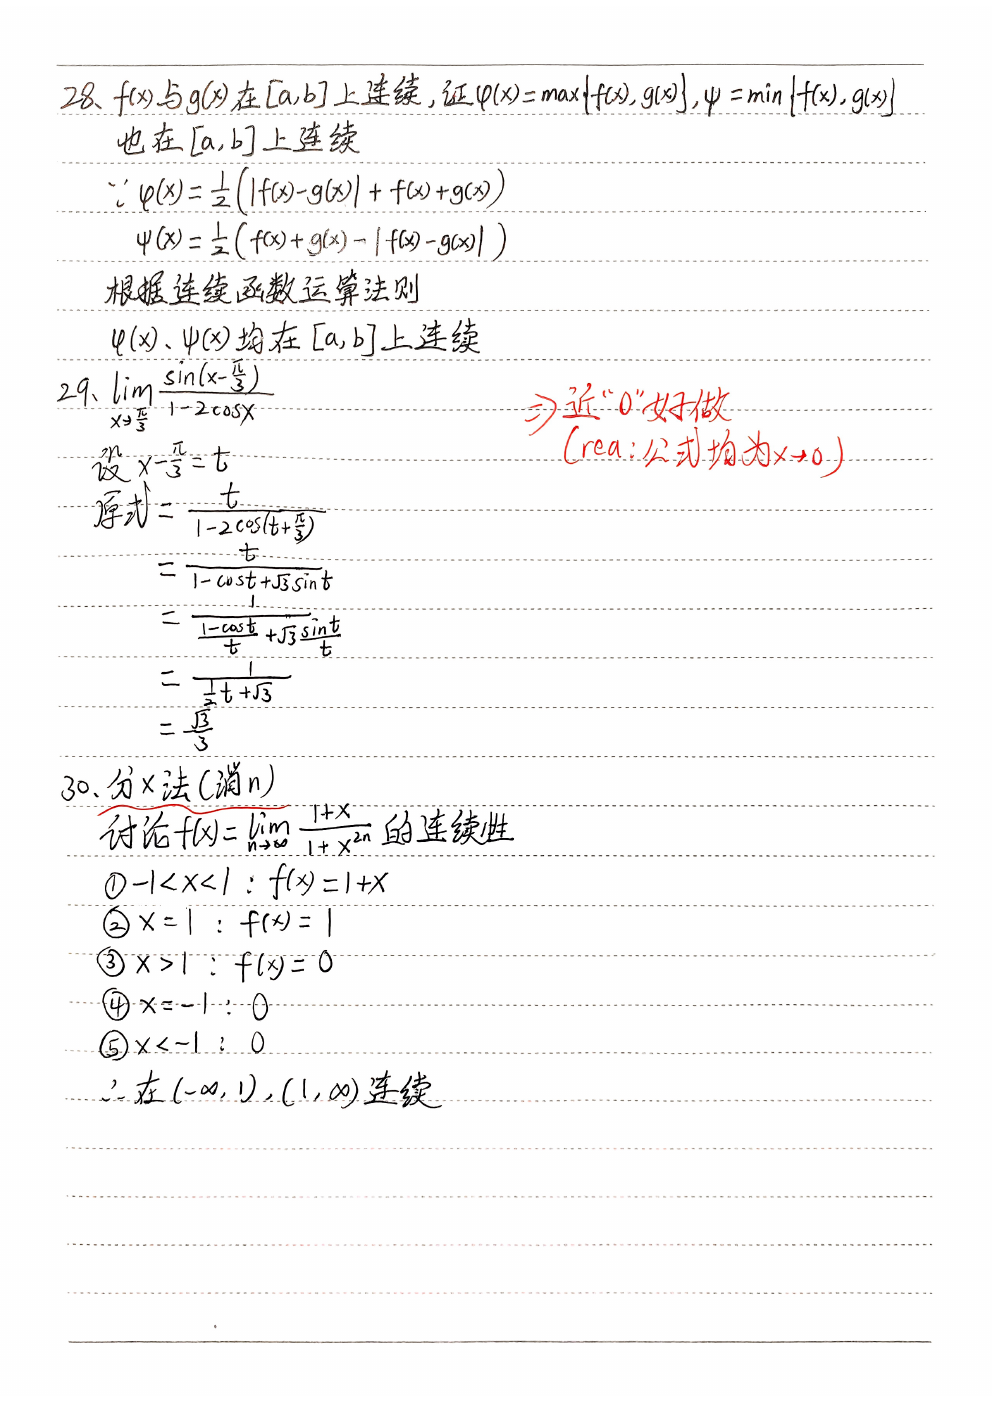 28、f(x)与g(x)在[a,b]上连续,证φ(x)=max{f(x),g(x)},ψ=min{f(x),g(x)}
也在[a,b]上连续
∵ φ(x)=1/2(|f(x)-g(x)|+f(x)+g(x))
ψ(x)=1/2(f(x)+g(x)-|f(x)-g(x)|)
根据连续函数运算法则
φ(x)、ψ(x)均在[a,b]上连续
29、lim x→π/3 sin(x-π/3)/(1-2cosx)
⇒近“0”好做
(rea:公式均为x→0)
设x-π/3=t
原式=t/(1-2cos(t+π/3))
=t/(1-cost+√3sint)
=1/((1-cost)/t+√3 sint/t)
=1/(1/2t+√3)
=√3/3
30、分x法(消n)
讨论f(x)=lim n→∞ (1+x)/(1+x^2n)的连续性
①-1<x<1:f(x)=1+x
②x=1:f(x)=1
③x>1:f(x)=0
④x=-1:0
⑤x<-1:0
∴在(-∞,1),(1,∞)连续